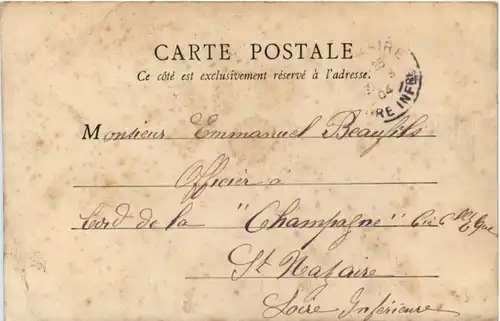 CARTE POSTALE
Ce côté est exclusivement réservé à l'adresse.
AIRE
8
04
RE INFRE
Monsieur Emmanuel Beaufils
Officier à
bord de la "Champagne" Cie Gle
St Nazaire
Loire Inférieure